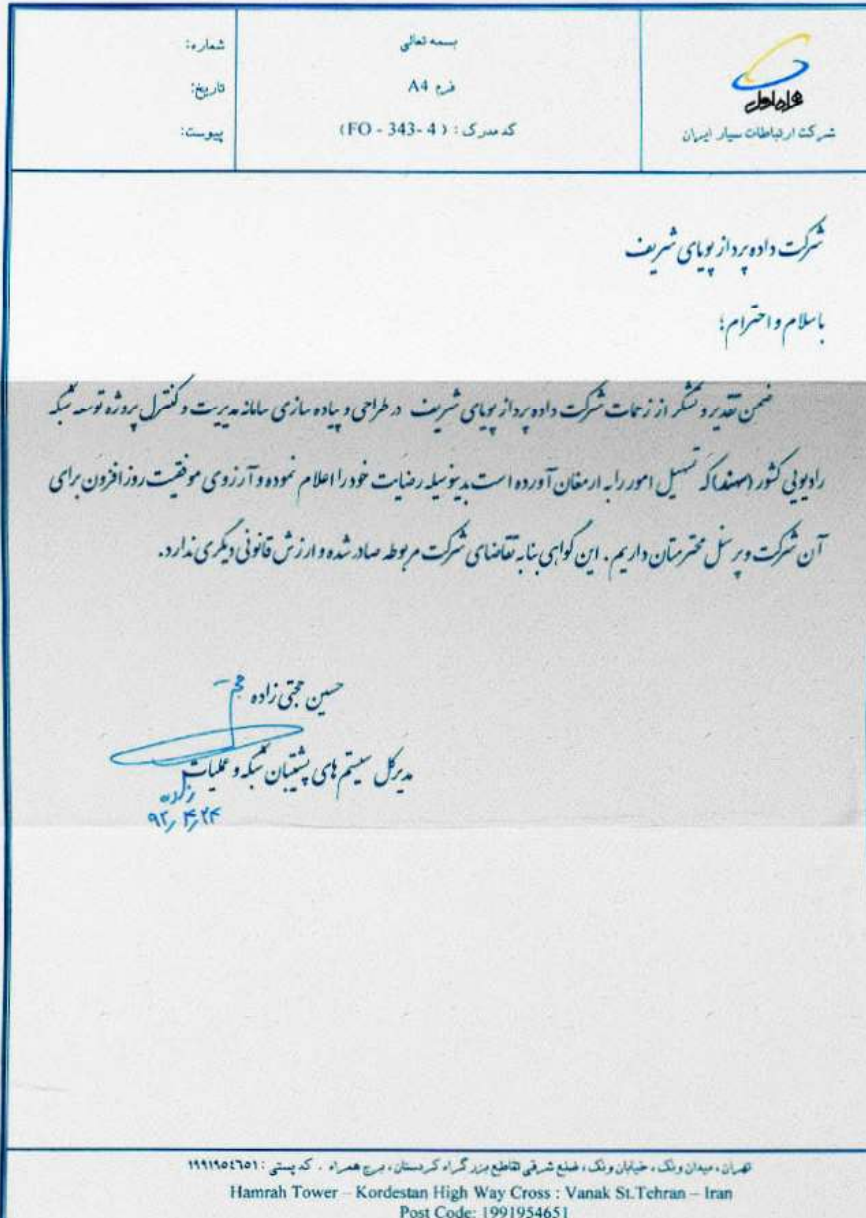 همراه اول
شرکت ارتباطات سیار ایران
بسمه تعالی
فرم A4
کد مدرک : ( FO - 343- 4 )
شماره:
تاریخ:
پیوست:
شرکت داده پرداز پویای شریف
باسلام و احترام؛
ضمن تقدیر و تشکر از زحمات شرکت داده پرداز پویای شریف در طراحی و پیاده سازی سامانه مدیریت و کنترل پروژه توسعه شبکه
رادیویی کشور (سهند) که تسهیل امور را به ارمغان آورده است بدینوسیله رضایت خود را اعلام نموده و آرزوی موفقیت روز افزون برای
آن شرکت و پرسنل محترمتان داریم. این گواهی بنا به تقاضای شرکت مربوطه صادر شده و ارزش قانونی دیگری ندارد.
حسین حجتی زاده
مدیرکل سیستم های پشتیبان شبکه و عملیات
۹۲٫۴٫۲۴
تهران، میدان ونک، خیابان ونک، ضلع شرقی تقاطع بزرگراه کردستان، برج همراه . کد پستی : ۱۹۹۱۹۵٤٦۵۱
Hamrah Tower – Kordestan High Way Cross : Vanak St.Tehran – Iran
Post Code: 1991954651